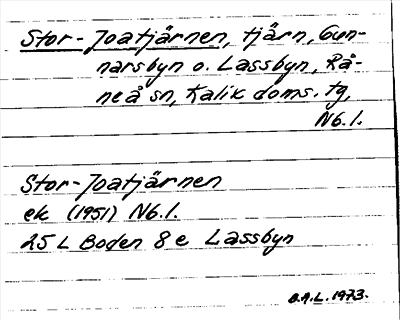 Stor-Joatjärnen, tjärn, Gun-
narsbyn o. Lassbyn, Rå-
neå sn, Kalix doms. tg,
Nb. l.
Stor-Joatjärnen
ek (1951) Nb. l.
25 L Boden 8 e Lassbyn
D.A.L. 1973.